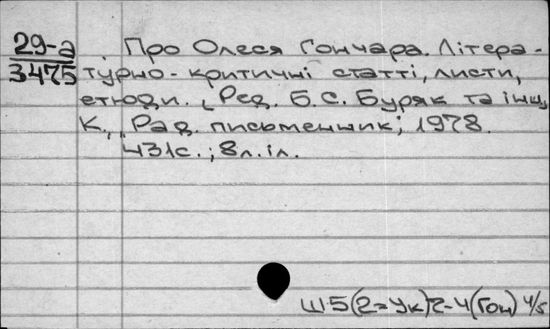 29-а Про Олеся Гончара. Літера-
3475 турно-критичні статті, листи,
етюди. [Ред. Б.С. Буряк та інш.]
К., "Рад. письменник", 1978.
431с.; 8л.іл.
Ш5(2=Ук)7-4(Гон) 4/5